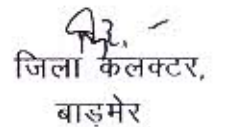 जिला कलक्टर,
बाड़मेर